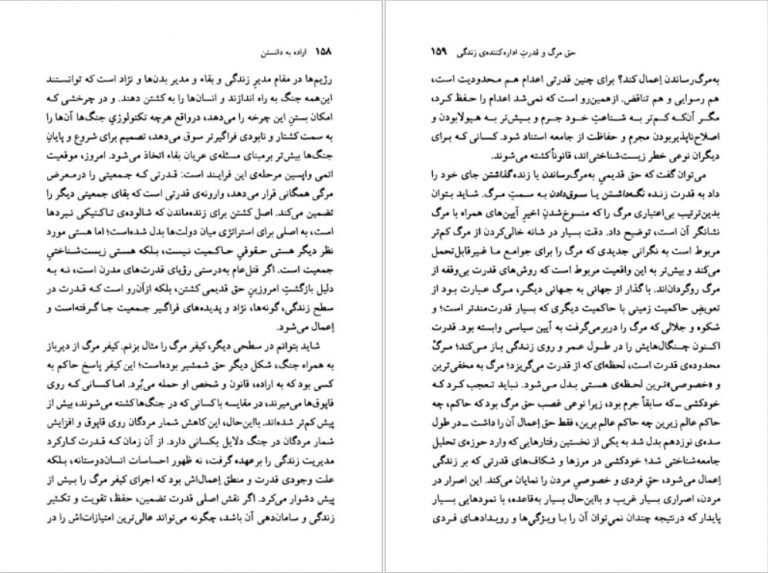 ۱۵۸ اراده به دانستن
رژیم‌ها در مقام مدیرِ زندگی و بقاء و مدیر بدن‌ها و نژاد است که توانستند
این‌همه جنگ به راه اندازند و انسان‌ها را به کشتن دهند. و در چرخشی که
امکان بستن این چرخه را می‌دهد، درواقع هرچه تکنولوژیِ جنگ‌ها آن‌ها را
به سمت کشتار و نابودی فراگیرتر سوق می‌دهد، تصمیم برای شروع و پایانِ
جنگ‌ها بیش‌تر برمبنای مسئله‌ی عریان بقاء اتخاذ می‌شود. امروز، موقعیت
اتمی واپسین مرحله‌ی این فرایند است: قدرتی که جمعیتی را درمعرض
مرگی همگانی قرار می‌دهد، وارونه‌ی قدرتی است که بقای جمعیتی دیگر را
تضمین می‌کند. اصل کشتن برای زنده‌ماندن که شالوده‌ی تاکتیکی نبردها
است، به اصلی برای استراتژی میان دولت‌ها بدل شده‌است؛ اما هستی مورد
نظر دیگر هستی حقوقیِ حاکمیت نیست، بلکه هستی زیست‌شناختیِ
جمعیت است. اگر قتل‌عام به‌درستی رؤیای قدرت‌های مدرن است، نه به
دلیل بازگشتِ امروزینِ حق قدیمی کشتن، بلکه ازآن‌رو است که قدرت در
سطح زندگی، گونه‌ها، نژاد و پدیده‌های فراگیر جمعیت جا گرفته‌است و
اِعمال می‌شود.
شاید بتوانم در سطحی دیگر، کیفر مرگ را مثال بزنم. کیفر مرگ از دیرباز
به همراه جنگ، شکل دیگر حق شمشیر بوده‌است؛ این کیفر پاسخ حاکم به
کسی بود که به اراده، قانون و شخص او حمله می‌بُرد. اما کسانی که روی
قاپوق‌ها می‌میرند، در مقایسه با کسانی که در جنگ‌ها کشته می‌شوند، بیش از
پیش کم‌تر شده‌اند. بااین‌حال، این کاهش شمار مردگان روی قاپوق و افزایش
شمار مردگان در جنگ دلایل یکسانی دارد. از آن زمان که قدرت کارکرد
مدیریت زندگی را برعهده گرفت، نه ظهور احساسات انسان‌دوستانه، بلکه
علت وجودی قدرت و منطق اِعمال‌اش بود که اجرای کیفر مرگ را بیش از
پیش دشوار می‌کرد. اگر نقش اصلی قدرت تضمین، حفظ، تقویت و تکثیر
زندگی و سامان‌دهی آن باشد، چگونه می‌تواند عالی‌ترین امتیازات‌اش را در
حق مرگ و قدرتِ اداره‌کننده‌ی زندگی ۱۵۹
به‌مرگ‌رساندن اِعمال کند؟ برای چنین قدرتی اعدام هم محدودیت است،
هم رسوایی و هم تناقض. ازهمین‌رو است که نمی‌شد اعدام را حفظ کرد،
مگر آن‌که کم‌تر به شناعتِ خود جرم و بیش‌تر به هیولابودن و
اصلاح‌ناپذیربودن مجرم و حفاظت از جامعه استناد شود. کسانی که برای
دیگران نوعی خطر زیست‌شناختی‌اند، قانوناً کشته می‌شوند.
می‌توان گفت که حق قدیمیِ به‌مرگ‌رساندن یا زنده گذاشتن جای خود را
داد به قدرت زنده نگه‌داشتن یا سوق‌دادن به سمتِ مرگ. شاید بتوان
بدین‌ترتیب بی‌اعتباری مرگ را که منسوخ‌شدنِ اخیرِ آیین‌های همراه با مرگ
نشانگر آن است، توضیح داد. دقت بسیار در شانه خالی‌کردن از مرگ کم‌تر
مربوط است به نگرانی جدیدی که مرگ را برای جوامع ما غیرقابل‌تحمل
می‌کند و بیش‌تر به این واقعیت مربوط است که روش‌های قدرت بی‌وقفه از
مرگ روگردان‌اند. با گذار از جهانی به جهانی دیگر، مرگ عبارت بود از
تعویضِ حاکمیت زمینی با حاکمیت دیگری که بسیار قدرت‌مندتر است؛ و
شکوه و جلالی که مرگ را دربرمی‌گرفت به آیین سیاسی وابسته بود. قدرت
اکنون چنگال‌هایش را در طول عمر و روی زندگی باز می‌کند؛ مرگ
محدوده‌ی قدرت است، لحظه‌ای که از قدرت می‌گریزد؛ مرگ به مخفی‌ترین
و «خصوصی»ترین لحظه‌ی هستی بدل می‌شود. نباید تعجب کرد که
خودکشی ــ که سابقاً جرم بود، زیرا نوعی غصب حق مرگ بود که حاکم، چه
حاکم عالم زیرین چه حاکم عالم برین، فقط حق اِعمال آن را داشت ــ در طول
سده‌ی نوزدهم بدل شد به یکی از نخستین رفتارهایی که وارد حوزه‌ی تحلیل
جامعه‌شناختی شد؛ خودکشی در مرزها و شکاف‌های قدرتی که بر زندگی
اِعمال می‌شود، حقِ فردی و خصوصیِ مردن را نمایان می‌کند. این اصرار در
مردن، اصراری بسیار غریب و بااین‌حال بسیار به‌قاعده، با نمودهایی بسیار
پایدار که درنتیجه چندان نمی‌توان آن را با ویژگی‌ها و رویدادهای فردی